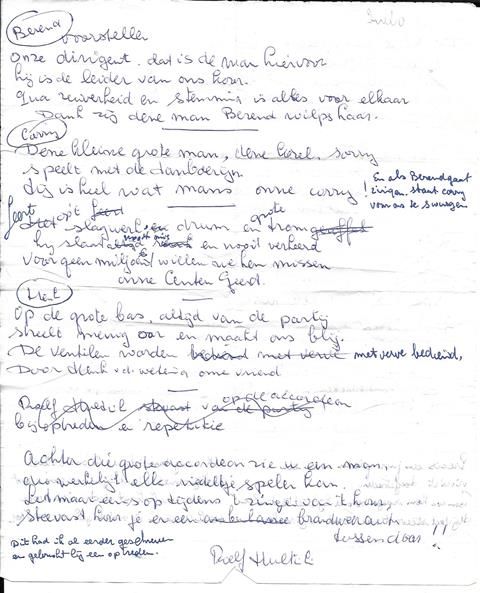 Berend
voorstellen
onze dirigent. dat is de man hiervoor
hij is de leider van ons koor.
qua zuiverheid en stemming is alles voor elkaar
Dank zij deze man Berend
Corry
Deze kleine grote man, deze ezel. sorry
speelt met de tamboerijn.
Hij is heel wat mans onze corry!
En als Berend gaat
zingen. staat corry
voor ons te
slagwerk en drum en grote trom
hij slaat nooit mis en nooit verkeerd
voor geen miljoen willen we hem missen
onze Centen Geerd.
Henk
op de grote bas, altijd van de partij
streelt menig oor en maakt ons blij.
De ventilen worden bediend met verve met verve bediend,
Door Henk v.d. wetering onze vriend
Roelf steevast van de partij op de accordeon
bij optreden en repetitie
Achter die grote accordeon zie u een man,
die werkelijk alle riedeltje spelen kan.
Let maar eens op tijdens 't zingen van 't koor,
steevast hoor je er een ambulance brandweerauto
tussendoor!!
Dit had ik al eerder geschreven
en gebruikt bij een optreden.
Roelf